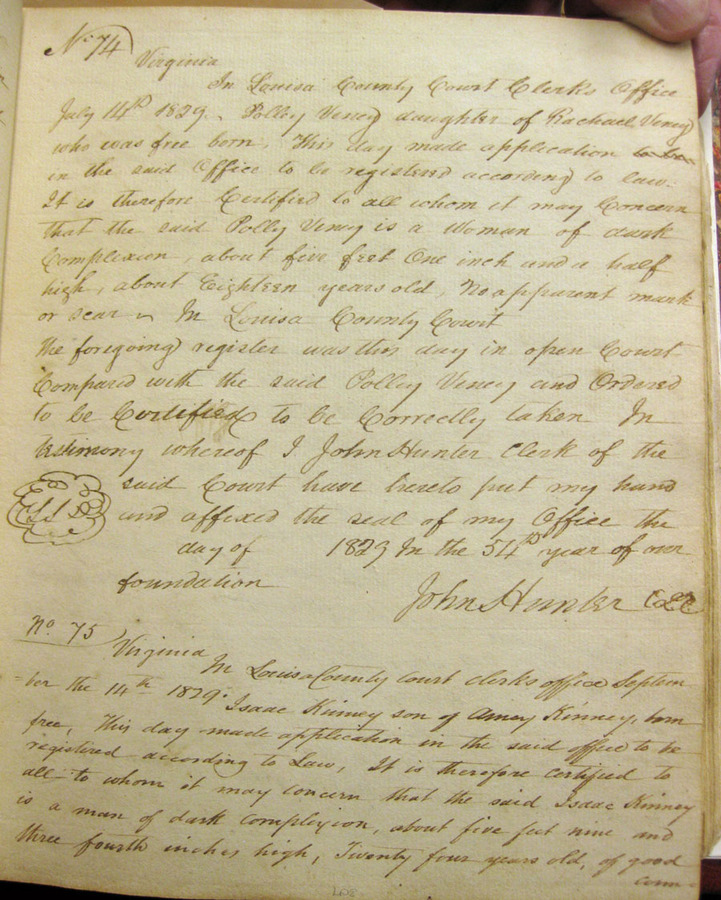 No 74
Virginia
In Louisa County Court Clerks Office
July 14th 1829. Polley Veney daughter of Rachael Veney
who was free born, This day made application to be
in the said Office to be registered according to law.
It is therefore Certified to all whom it may Concern
that the said Polly Veney is a Woman of dark
Complexion, about five feet One inch and a half
high, about Eighteen years old, No apparent mark
or scar In Louisa County Court
the foregoing register was this day in open Court
Compared with the said Polley Veney and Ordered
to be Certified to be Correctly taken In
testimony whereof I John Hunter Clerk of the
said Court have hereto put my hand
and affixed the seal of my Office the
day of 1829 In the 54th year of our
foundation
John Hunter
No. 75
Virginia
In Louisa County Court clerks office Septem
ber the 14th 1829. Isaac Kinney son of Amey Kinney, born
free, This day made application in the said office to be
registered according to Law, It is therefore certified to
all to whom it may concern that the said Isaac Kinney
is a man of dark complexion, about five feet nine and
three fourth inches high, Twenty four years old, of good